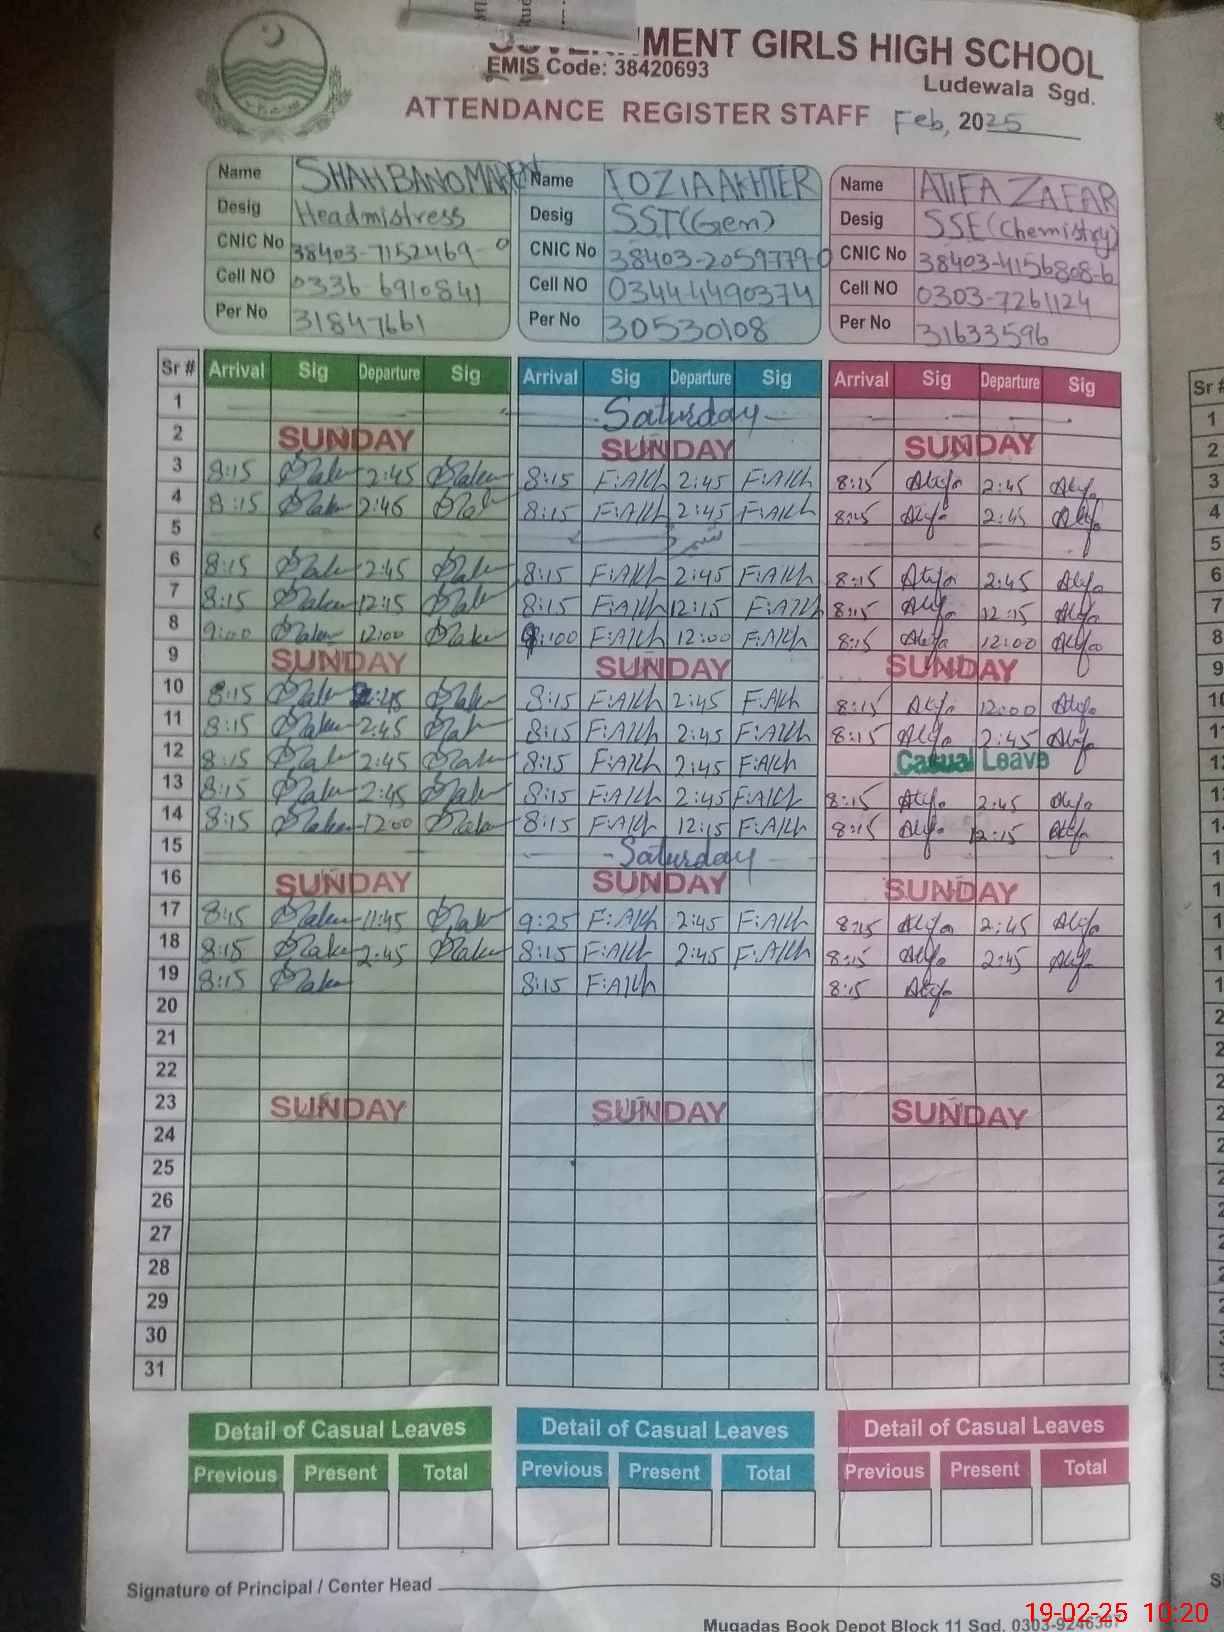 MENT GIRLS HIGH SCHOOL
EMIS Code: 38420693
Ludewala Sgd.
ATTENDANCE REGISTER STAFF Feb, 2025
Name SHAH BANO Name FOZIA AKHTER Name ATIFA ZAFAR
Desig Headmistress Desig SST(Gen) Desig SSE(Chemistry)
CNIC No 38403-7152469-0 CNIC No 38403-2059779-0 CNIC No 38403-4156808-6
Cell NO 0336-6910841 Cell NO 03444490374 Cell NO 0303-7261124
Per No 31847661 Per No 30530108 Per No 31633596
Sr # Arrival Sig Departure Sig Arrival Sig Departure Sig Arrival Sig Departure Sig Sr #
1 Saturday 1
2 SUNDAY SUNDAY SUNDAY 2
3 8:15 2:45 8:15 F:Akh 2:45 F:Akh 8:15 Atifa 2:45 Atifa 3
4 8:15 2:45 8:15 F:Akh 2:45 F:Akh 8:15 Atifa 2:45 Atifa 4
5 5
6 8:15 2:45 8:15 F:Akh 2:45 F:Akh 8:15 Atifa 2:45 Atifa 6
7 8:15 12:15 8:15 F:Akh 12:15 F:Akh 8:15 Atifa 12:15 Atifa 7
8 9:00 12:00 9:00 F:Akh 12:00 F:Akh 8:15 Atifa 12:00 Atifa 8
9 SUNDAY SUNDAY SUNDAY 9
10 8:15 2:45 8:15 F:Akh 2:45 F:Akh 8:15 Atifa 12:00 Atifa
11 8:15 2:45 8:15 F:Akh 2:45 F:Akh 8:15 Atifa 2:45 Atifa
12 8:15 2:45 8:15 F:Akh 2:45 F:Akh Casual Leave
13 8:15 2:45 8:15 F:Akh 2:45 F:Akh 8:15 Atifa 2:45 Atifa
14 8:15 12:00 8:15 F:Akh 12:15 F:Akh 8:15 Atifa 12:15 Atifa
15 Saturday
16 SUNDAY SUNDAY SUNDAY
17 8:15 11:45 9:25 F:Akh 2:45 F:Akh 8:15 Atifa 2:45 Atifa
18 8:15 2:45 8:15 F:Akh 2:45 F:Akh 8:15 Atifa 2:45 Atifa
19 8:15 8:15 F:Akh 8:15 Atifa
20
21
22
23 SUNDAY SUNDAY SUNDAY
24
25
26
27
28
29
30
31
Detail of Casual Leaves Detail of Casual Leaves Detail of Casual Leaves
Previous Present Total Previous Present Total Previous Present Total
Signature of Principal / Center Head
Muqadas Book Depot Block 11 Sgd.
19-02-25 10:20